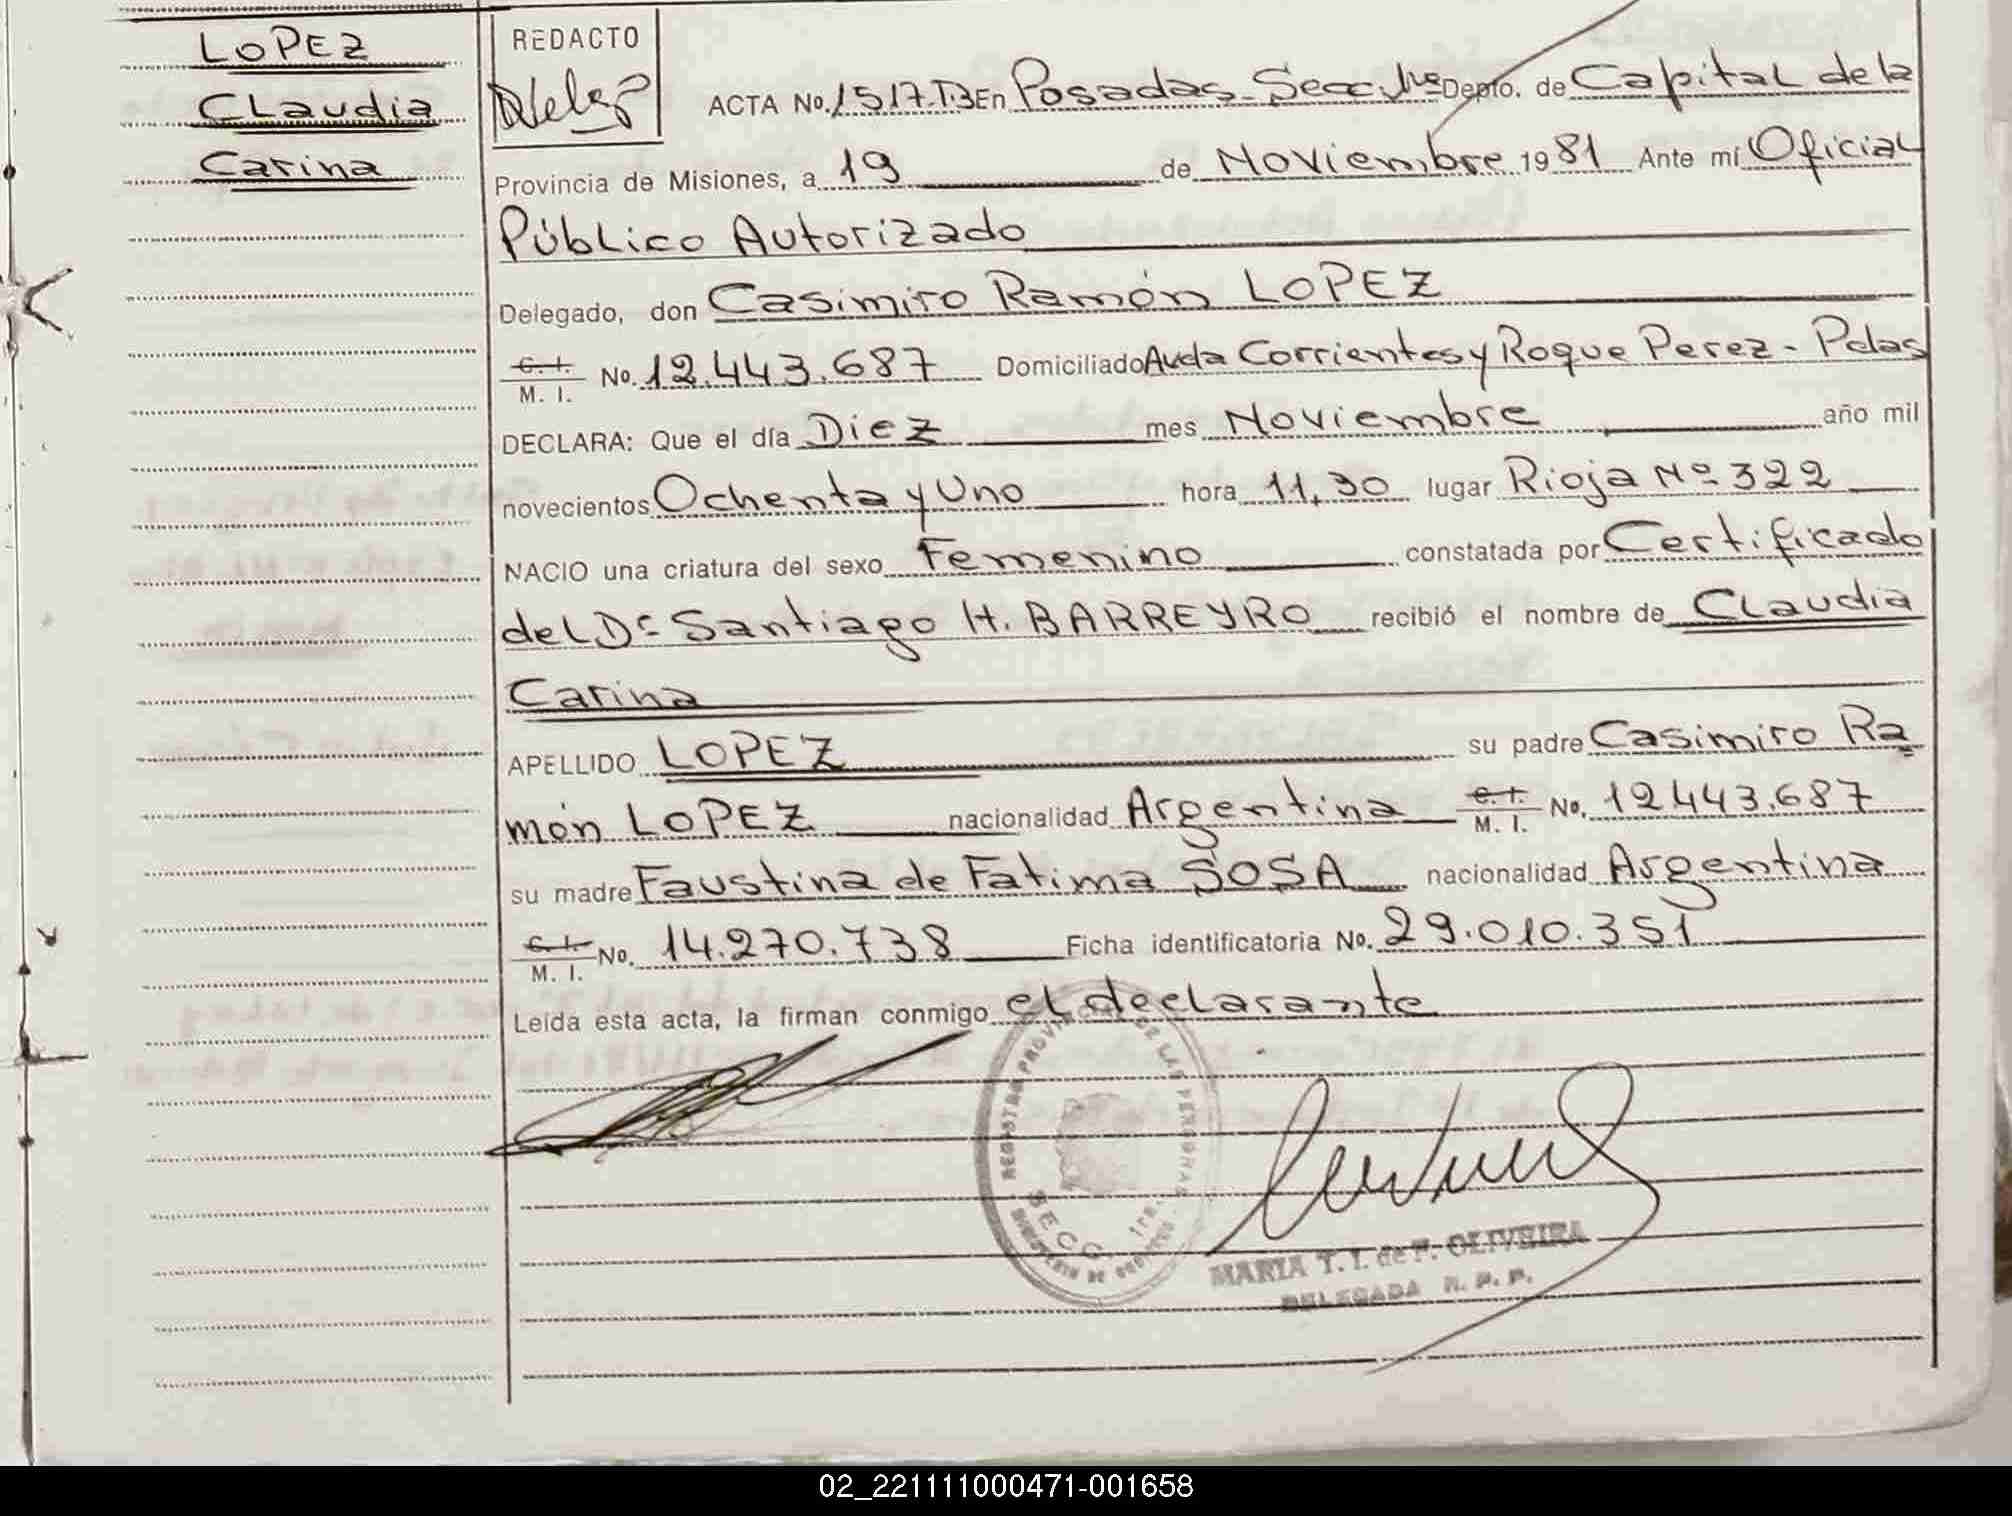 LOPEZ
Claudia
Carina
REDACTO
ACTA No. 1517.T3 En Posadas-Secc 1ra Depto. de Capital de la
Provincia de Misiones, a 19 de Noviembre 1981 Ante mí Oficial
Público Autorizado
Delegado, don Casimiro Ramón LOPEZ
C. I.
M. I. No. 12.443.687 Domiciliado Avda Corrientes y Roque Perez - Pdas
DECLARA: Que el día Diez mes Noviembre año mil
novecientos Ochenta y Uno hora 11,30 lugar Rioja Nº 322
NACIO una criatura del sexo Femenino constatada por Certificado
del Dr Santiago H. BARREYRO recibió el nombre de Claudia
Carina
APELLIDO LOPEZ su padre Casimiro Ra
món LOPEZ nacionalidad Argentina C. I. M. I. No. 12443.687
su madre Faustina de Fatima SOSA nacionalidad Argentina
C. I. M. I. No. 14.270.738 Ficha identificatoria No. 29.010.351
Leída esta acta, la firman conmigo el declarante
REGISTRO PROVINCIAL DE LAS PERSONAS
SECC. 1ra.
MARIA T. I. de F. OLIVEIRA
DELEGADA R. P. P.
02_221111000471-001658